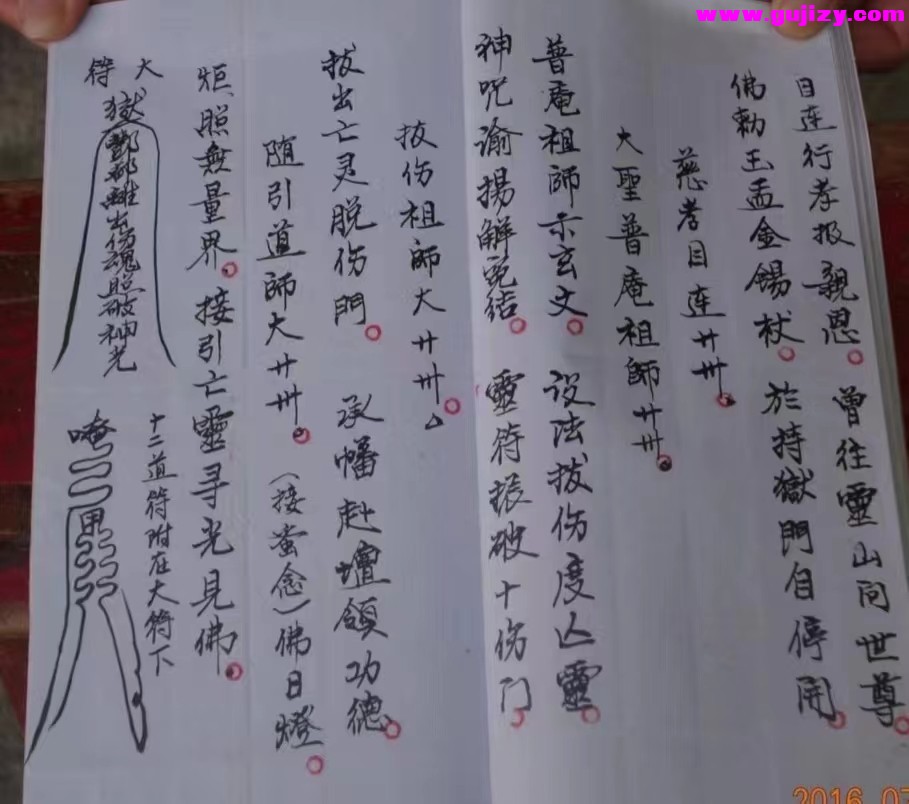 www.gujizy.com
目连行孝报親恩。曾往靈山问世尊。
佛勅玉盂金锡杖。於持獄門自停開。
慈孝目连廾卅。
大聖普庵祖師廾卅。
普庵祖師示玄文。设法拔伤度亾靈。
神咒谕揚解冤结。靈符振破十伤门。
拔伤祖師大廾卅。
拔出亡灵脱伤門。承幡赴壇領功德。
随引道師大廾卅。(接萤念)佛日燈。
炬照無量界。接引亡靈寻光見佛。
大符
獄酆都離出伤魂照破神光
十二道符附在大符下
唵
2016 07